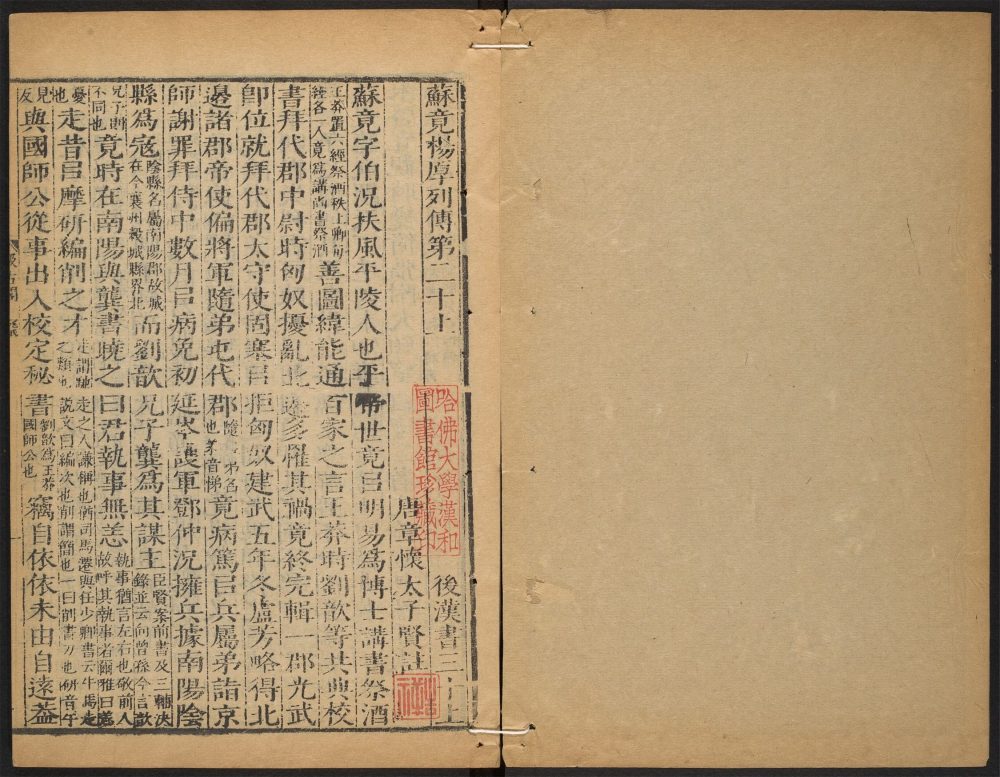 蘇竟楊厚列傳第二十上 後漢書三十上
唐章懷太子賢註
蘇竟字伯況扶風平陵人也平帝世竟㠯明易爲博士講書祭酒
王莽置六經祭酒秩上卿每經各一人竟爲講尚書祭酒善圖緯能通百家之言王莽時劉歆等共典校
書拜代郡中尉時匈奴擾亂北邊多罹其禍竟終完輯一郡光武
卽位就拜代郡太守使固塞㠯拒匈奴建武五年冬盧芳略得北
邊諸郡帝使偏將軍隨弟屯代郡隨姓弟名也弟音悌竟病篤㠯兵屬弟詣京
師謝罪拜侍中數月㠯病免初延岑護軍鄧仲況擁兵據南陽陰
縣爲寇陰縣名屬南陽郡故城在今襄州穀城縣界北而劉歆兄子龔爲其謀主臣賢案前書及三輔決錄並云向曾孫今言歆
兄子則不同也竟時在南陽與龔書曉之曰君執事無恙執事猶言左右也敬前人故呼其執事者爾雅曰恙
憂也走昔㠯摩研編削之才走謂馳走之人謙稱也猶司馬遷與任少卿書云牛馬走之類也說文曰編次也削謂簡也一曰削書刀也研音午
見反與國師公從事出入校定秘書劉歆爲王莽國師公也竊自依依末由自遠蓋
哈佛大學漢和
圖書館珍藏印